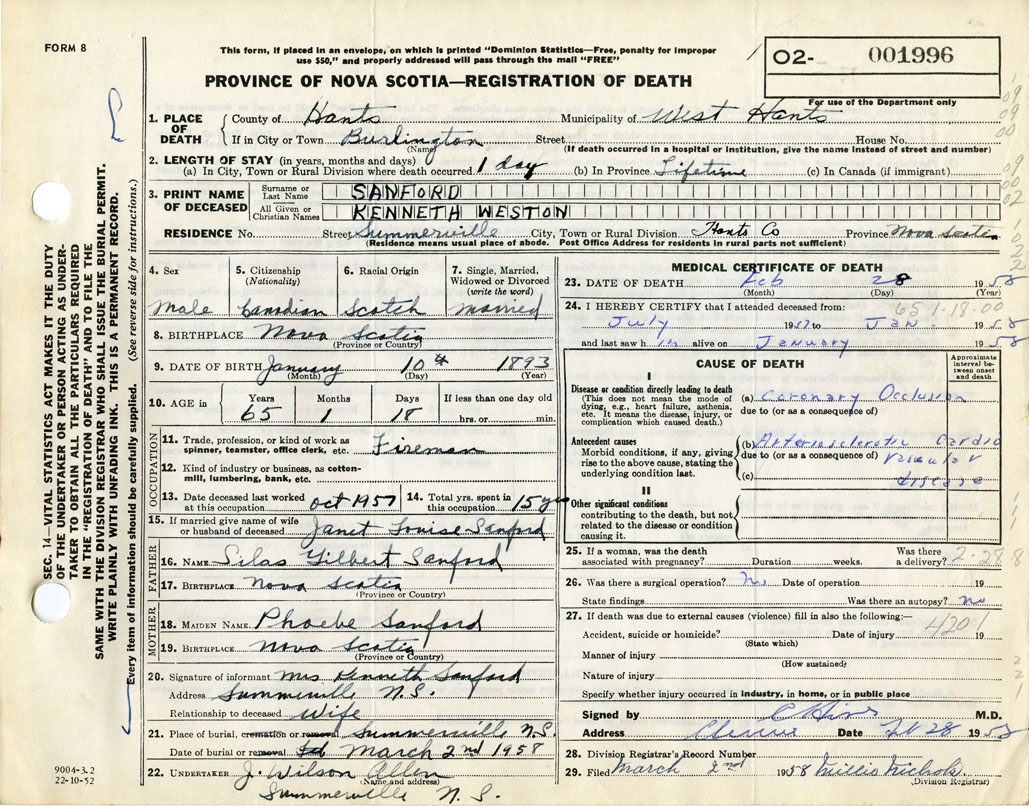 FORM 8
This form, if placed in an envelope, on which is printed "Dominion Statistics—Free, penalty for improper
use $50," and properly addressed will pass through the mail "FREE"
PROVINCE OF NOVA SCOTIA—REGISTRATION OF DEATH
O2- 001996
For use of the Department only
SEC. 14—VITAL STATISTICS ACT MAKES IT THE DUTY
OF THE UNDERTAKER OR PERSON ACTING AS UNDER-
TAKER TO OBTAIN ALL THE PARTICULARS REQUIRED
IN THE "REGISTRATION OF DEATH" AND TO FILE THE
SAME WITH THE DIVISION REGISTRAR WHO SHALL ISSUE THE BURIAL PERMIT.
WRITE PLAINLY WITH UNFADING INK. THIS IS A PERMANENT RECORD.
Every item of information should be carefully supplied. (See reverse side for instructions.)
1. PLACE OF DEATH County of Hants Municipality of West Hants
If in City or Town Burlington Street House No.
(Name) (If death occurred in a hospital or institution, give the name instead of street and number)
2. LENGTH OF STAY (in years, months and days)
(a) In City, Town or Rural Division where death occurred. 1 day (b) In Province Lifetime (c) In Canada (if immigrant)
3. PRINT NAME OF DECEASED Surname or Last Name SANFORD
All Given or Christian Names KENNETH WESTON
RESIDENCE No. Street Summerville City, Town or Rural Division Hants Co Province Nova Scotia
(Residence means usual place of abode. Post Office Address for residents in rural parts not sufficient)
4. Sex 5. Citizenship (Nationality) 6. Racial Origin 7. Single, Married, Widowed or Divorced (write the word)
Male Canadian Scotch Married
8. BIRTHPLACE Nova Scotia
(Province or Country)
9. DATE OF BIRTH January 10th 1893
(Month) (Day) (Year)
10. AGE in Years Months Days If less than one day
65 1 18 hrs. or min.
OCCUPATION
11. Trade, profession, or kind of work as
spinner, teamster, office clerk, etc. Fireman
12. Kind of industry or business, as cotton-
mill, lumbering, bank, etc.
13. Date deceased last worked at this occupation oct 1957 14. Total yrs. spent in this occupation 15 yrs
15. If married give name of wife
or husband of deceased Janet Louise Sanford
FATHER
16. NAME Silas Gilbert Sanford
17. BIRTHPLACE Nova Scotia
(Province or Country)
MOTHER
18. MAIDEN NAME Phoebe Sanford
19. BIRTHPLACE Nova Scotia
(Province or Country)
20. Signature of informant Mrs Kenneth Sanford
Address Summerville N.S.
Relationship to deceased Wife
21. Place of burial, cremation or removal Summerville N.S.
Date of burial or removal March 2nd 1958
22. UNDERTAKER J. Wilson Allen
(Name and address)
Summerville N.S.
9004-3.2
22-10-52
MEDICAL CERTIFICATE OF DEATH
23. DATE OF DEATH Feb 28 1958
(Month) (Day) (Year)
24. I HEREBY CERTIFY that I attended deceased from: 65-1-18-00
July 1957 to Jan. 1958
and last saw him alive on January 1958
CAUSE OF DEATH
Approximate interval between onset and death
I
Disease or condition directly leading to death
(This does not mean the mode of
dying, e.g., heart failure, asthenia,
etc. It means the disease, injury, or
complication which caused death.)
(a) Coronary Occlusion
due to (or as a consequence of)
Antecedent causes
Morbid conditions, if any, giving
rise to the above cause, stating the
underlying condition last.
(b) Arteriosclerotic Cardio
due to (or as a consequence of) vascular
(c) disease
II
Other significant conditions
contributing to the death, but not
related to the disease or condition
causing it.
25. If a woman, was the death associated with pregnancy? Duration weeks. Was there a delivery? 2-28 8
26. Was there a surgical operation? No Date of operation 19
State findings Was there an autopsy? No
27. If death was due to external causes (violence) fill in also the following:—
4201
Accident, suicide or homicide? Date of injury 19
(State which)
Manner of injury
(How sustained)
Nature of injury
Specify whether injury occurred in industry, in home, or in public place
Signed by M.D.
Address Date Feb 28 1958
28. Division Registrar's Record Number
29. Filed March 2nd 1958 Millie Nichols
(Division Registrar)